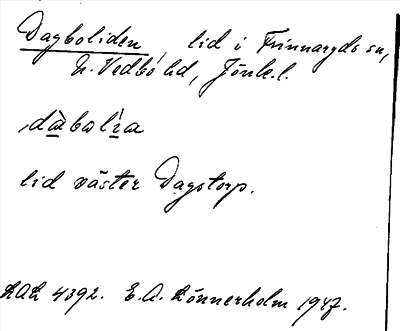 Dagboliden, lid i Frinnaryds sn,
N. Vedbo hd, Jönk.l.
dàbolìa
lid väster Dagstorp.
LAL 4392. E.A. Lönnerholm 1947.